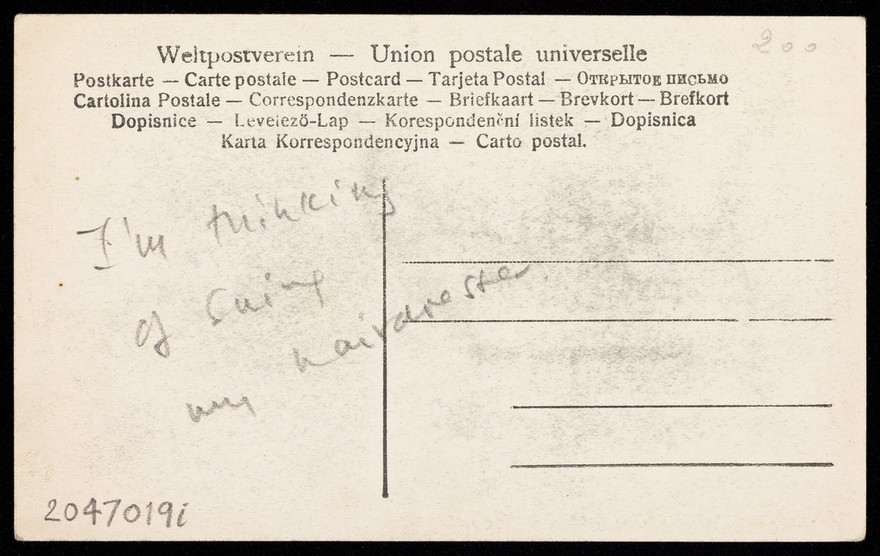 200
Weltpostverein — Union postale universelle
Postkarte — Carte postale — Postcard — Tarjeta Postal — Открытое письмо
Cartolina Postale — Correspondenzkarte — Briefkaart — Brevkort — Brefkort
Dopisnice — Levelező-Lap — Korespondenční listek — Dopisnica
Karta Korrespondencyjna — Carto postal.
I'm thinking
of suing
my hairdresser.
2047019i